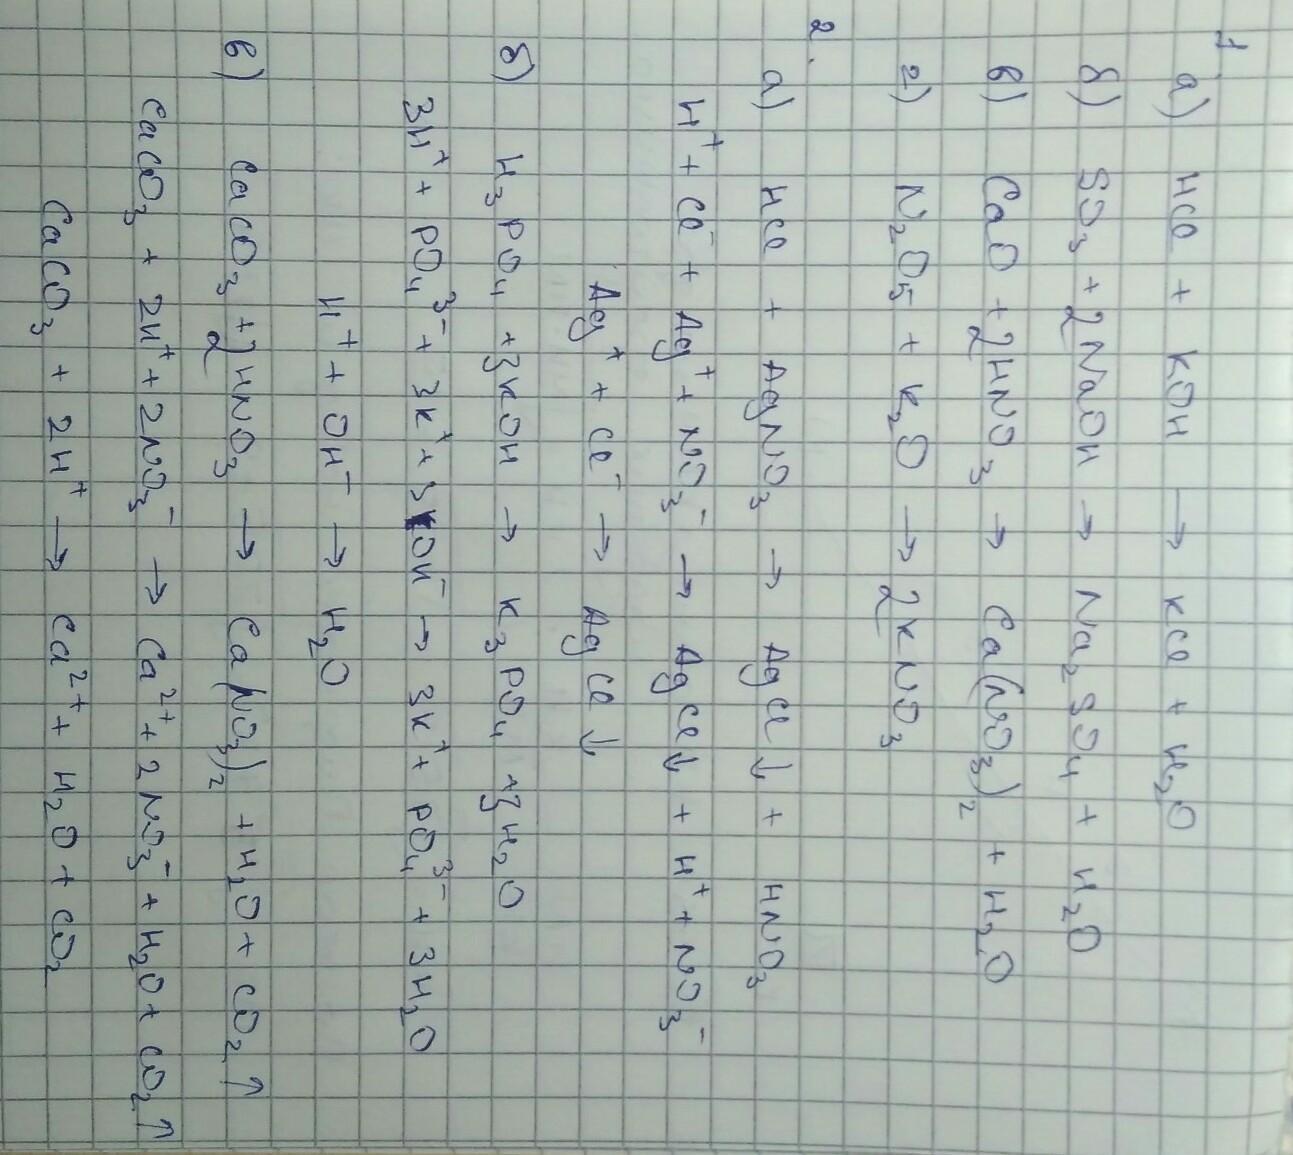 1
а) HCl + KOH → KCl + H₂O
б) SO₃ + 2NaOH → Na₂SO₄ + H₂O
в) CaO + 2HNO₃ → Ca(NO₃)₂ + H₂O
г) N₂O₅ + K₂O → 2KNO₃
2.
а) HCl + AgNO₃ → AgCl↓ + HNO₃
H⁺ + Cl⁻ + Ag⁺ + NO₃⁻ → AgCl↓ + H⁺ + NO₃⁻
Ag⁺ + Cl⁻ → AgCl↓
б) H₃PO₄ + 3KOH → K₃PO₄ + 3H₂O
3H⁺ + PO₄³⁻ + 3K⁺ + 3OH⁻ → 3K⁺ + PO₄³⁻ + 3H₂O
H⁺ + OH⁻ → H₂O
в) CaCO₃ + 2HNO₃ → Ca(NO₃)₂ + H₂O + CO₂↑
CaCO₃ + 2H⁺ + 2NO₃⁻ → Ca²⁺ + 2NO₃⁻ + H₂O + CO₂↑
CaCO₃ + 2H⁺ → Ca²⁺ + H₂O + CO₂